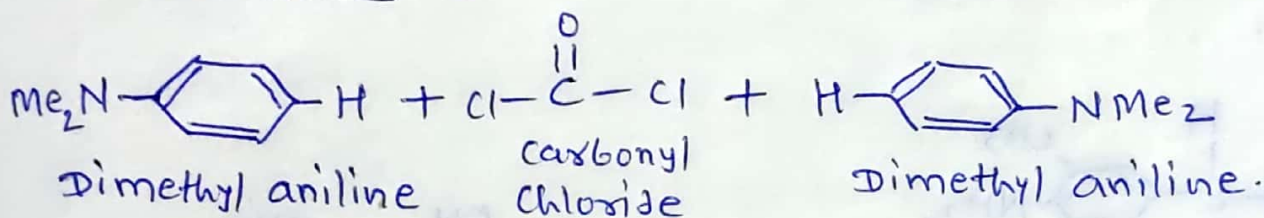 O
Me₂N H + Cl-C-Cl + H NMe₂
Dimethyl aniline Carbonyl Chloride Dimethyl aniline.